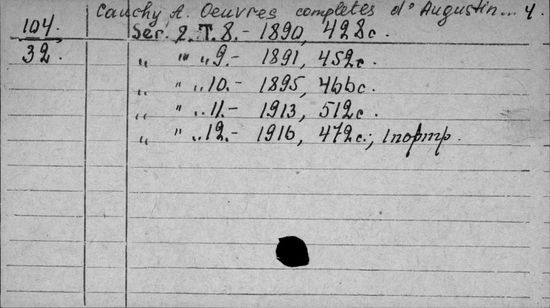 Cauchy, A. Oeuvres complètes d'Augustin... 4.
104. Sér. 2. T. 8. - 1890, 428c.
32. " " " 9. - 1891, 452c.
" " " 10. - 1895, 466c.
" " " 11. - 1913, 512c.
" " " 12. - 1916, 472c.; 1портр.